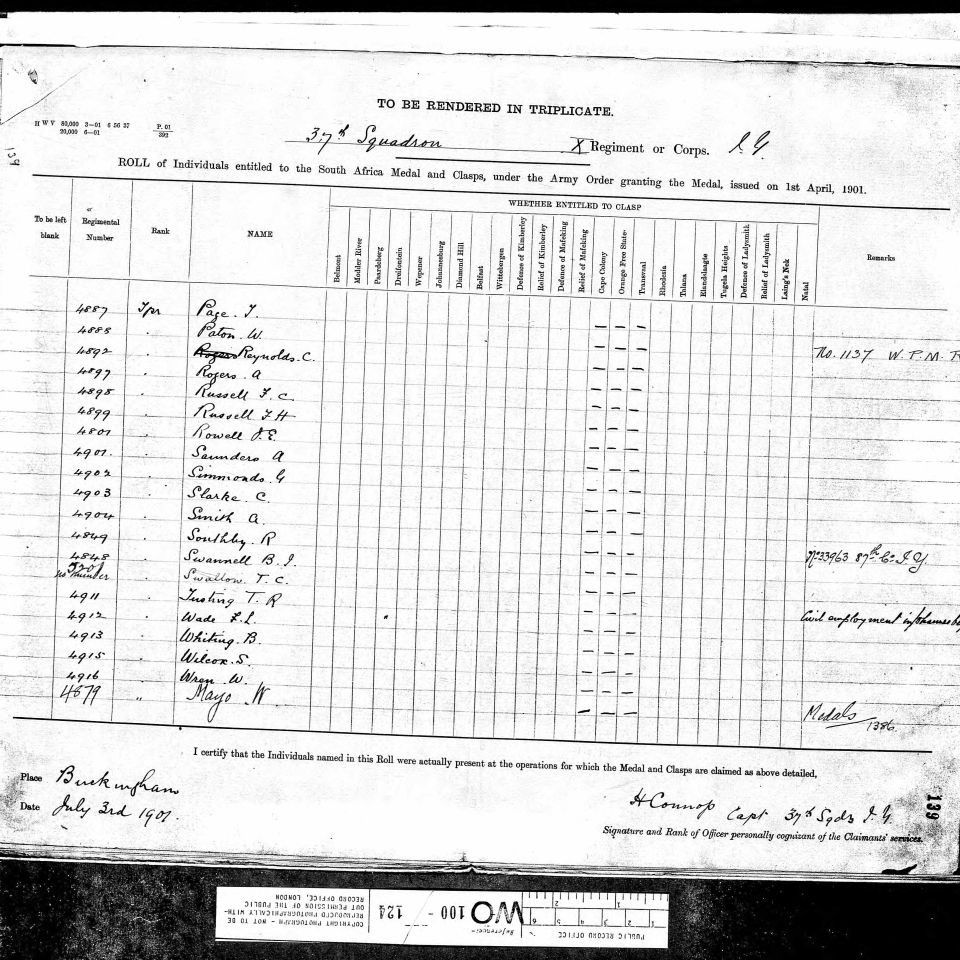 TO BE RENDERED IN TRIPLICATE.
H W V 80,000 3—01 6 56 37 P. 01
20,000 6—01 392
139
37th Squadron X Regiment or Corps. I.Y.
ROLL of Individuals entitled to the South Africa Medal and Clasps, under the Army Order granting the Medal, issued on 1st April, 1901.
WHETHER ENTITLED TO CLASP
To be left blank Regimental Number Rank NAME Belmont Modder River Paardeberg Dreifontein Wepener Johannesburg Diamond Hill Belfast Wittebergen Defence of Kimberley Relief of Kimberley Defence of Mafeking Relief of Mafeking Cape Colony Orange Free State Transvaal Rhodesia Talana Elandslaagte Tugela Heights Defence of Ladysmith Relief of Ladysmith Laing's Nek Natal Remarks
4887 Tpr Page. T. — — —
4888 . Paton. W. — — —
4892 . Rogers Reynolds. C. — — — No. 1137 W. P. M. R
4897 . Rogers. A — — —
4898 . Russell F. C — — —
4899 . Russell F H — — —
4801 . Rowell J. E. — — —
4901. . Saunders A — — —
4902 . Simmonds. G — — —
4903 . Slarke. C. — — —
4904 . Smith A. — — —
4849 . Southby. R — — —
4848 . Swannell B. I. — — — No 33963 87th Co I. Y.
5201
no number . Swallow T. C. — — —
4911 . Tusting T. R — — —
4912 . Wade F. L. " — — — Civil employment
4913 . Whiting. B. — — —
4915 . Wilcox. S. — — —
4916 . Wren. W. — — —
4879 " Mayo. W. — — — Medals 1386
I certify that the Individuals named in this Roll were actually present at the operations for which the Medal and Clasps are claimed as above detailed,
Place Buckingham
Date July 3rd 1901.
H Connop Capt 37th Sqdn I. Y.
Signature and Rank of Officer personally cognizant of the Claimants' services.
139
PUBLIC RECORD OFFICE
1 2 3 4 5 6
1 2
Reference:—
WO 100 - 124
COPYRIGHT PHOTOGRAPH - NOT TO BE
REPRODUCED PHOTOGRAPHICALLY WITH-
OUT PERMISSION OF THE PUBLIC
RECORD OFFICE, LONDON